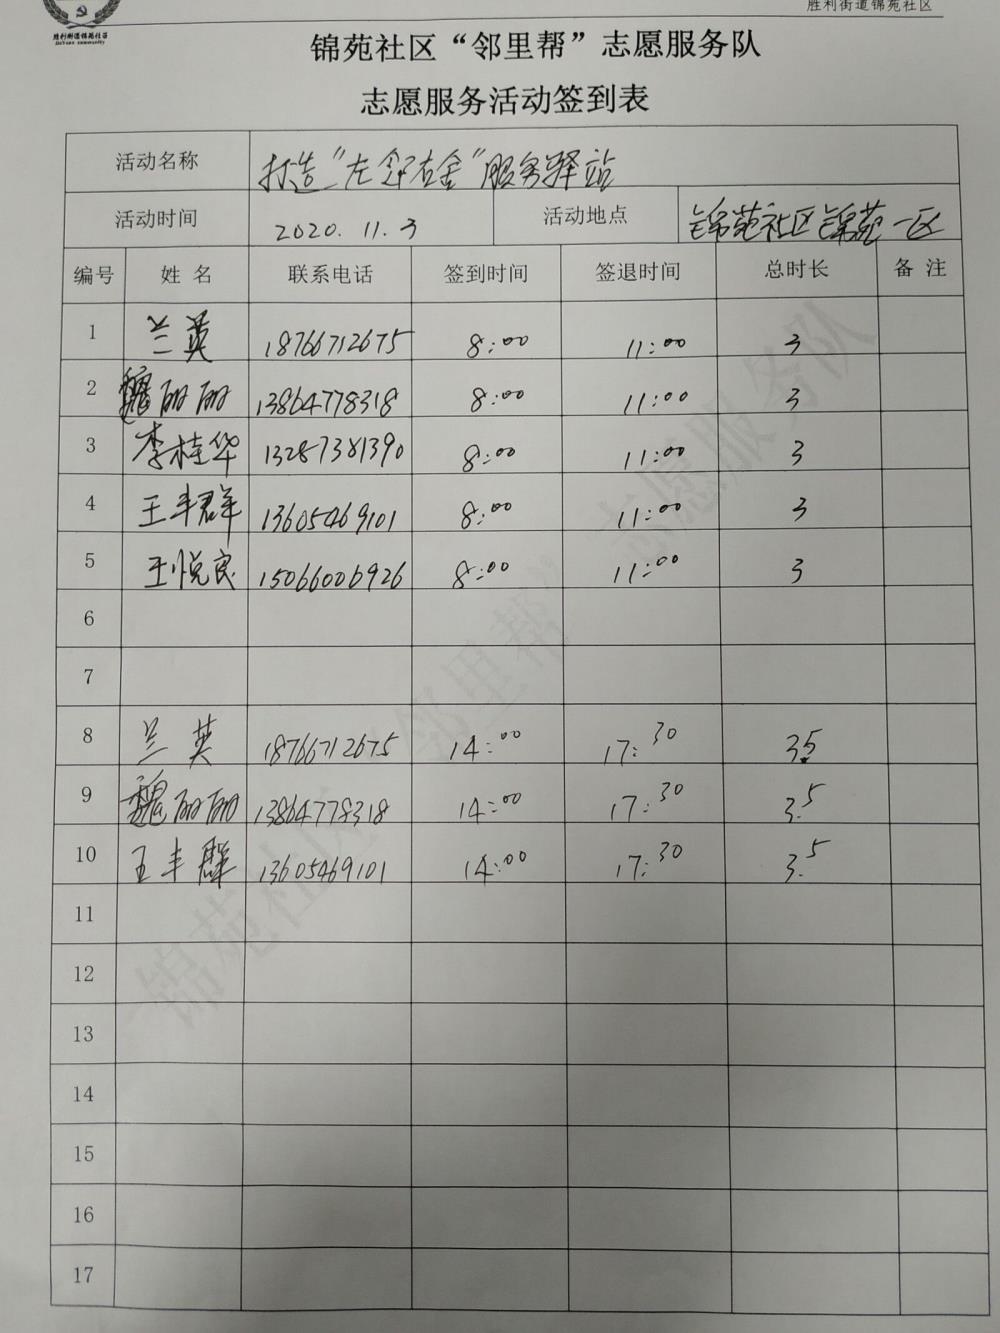 胜利街道锦苑社区
胜利街道锦苑社区
JinYuan community
锦苑社区“邻里帮”志愿服务队
志愿服务活动签到表
活动名称 打造“左邻右舍”服务驿站
活动时间 2020.11.3 活动地点 锦苑社区锦苑一区
编号 姓名 联系电话 签到时间 签退时间 总时长 备注
1 兰英 18766712675 8:00 11:00 3
2 魏丽丽 13864778318 8:00 11:00 3
3 李桂华 13287381390 8:00 11:00 3
4 王丰群 13605469101 8:00 11:00 3
5 王悦良 15066006926 8:00 11:00 3
6
7
8 兰英 18766712675 14:00 17:30 3.5
9 魏丽丽 13864778318 14:00 17:30 3.5
10 王丰群 13605469101 14:00 17:30 3.5
11
12
13
14
15
16
17
锦苑社区“邻里帮”志愿服务队